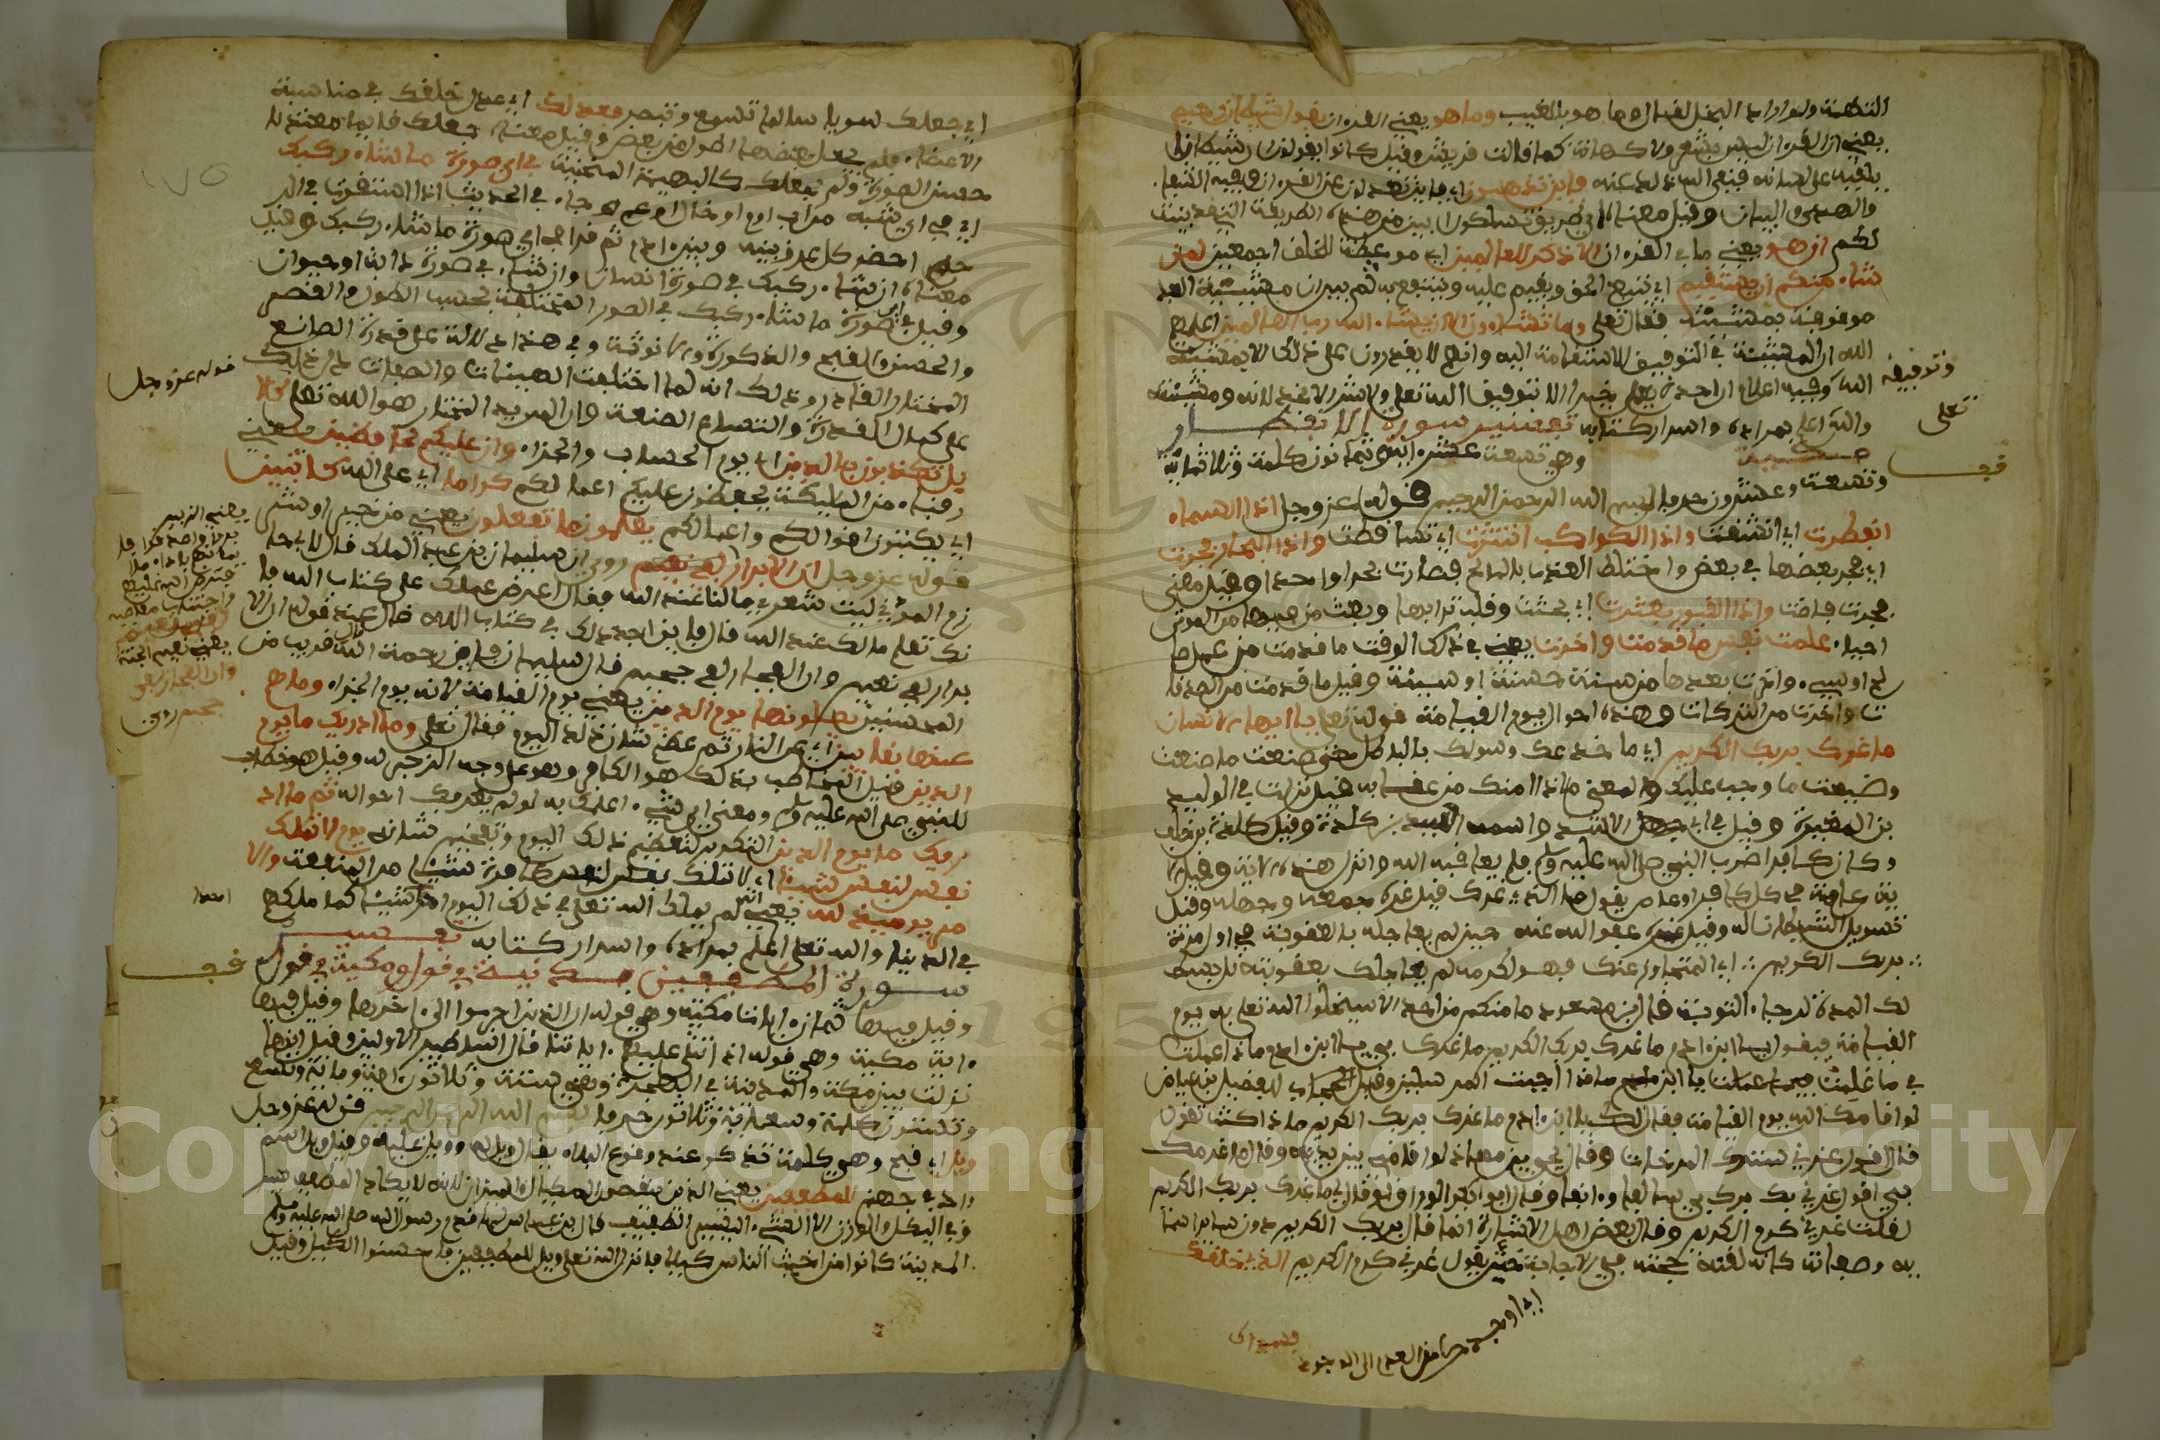 التهمة ولو اراد البخل لقال وما هو بالغيب وما هو يعني القرءان بقول شيطان رجيم
يعني ان القرءان ليس بشعر ولا كهانة كما قالت قريش وقيل كانوا يقولون ان شيطانا
يلقيه على لسانه فنفى الله ذلك عنه فاين تذهبون اي فاين تعدلون عن القرءان وفيه الشفاء
والهدى والبيان وقيل معناه اي طريق تسلكون ابين من هذه الطريقة التي قد بينت
لكم ان هو يعني ما في القرءان الا ذكر للعالمين اي موعظة للخلق اجمعين لمن
شاء منكم ان يستقيم اي يتبع الحق ويقيم عليه وينتفع به ثم بين ان مشيئة العبد
موقوفة بمشيئته فقال تعلى وما تشاءون الا ان يشاء الله رب العالمين اعلمهم
الله ان المشيئة في التوفيق للاستقامة اليه وانهم لا يقدرون على ذلك الا بمشيئة
الله وفيه اعلام ان احدا لا يعمل خيرا الا بتوفيق الله تعلى ولا شرا الا بخذلانه ومشيئته
وتوفيقه
تعلى
والله اعلم بمراده واسرار كتابه تفسير سورة الانفطار
مكية وهي تسعة عشر اية وثمانون كلمة وثلاثمائة
قف
وتسعة وعشرون حرفا بسم الله الرحمن الرحيم قوله عز وجل اذا السماء
انفطرت اي انشقت واذا الكواكب انتثرت اي تساقطت واذا البحار فجرت
اي فجر بعضها في بعض واختلط العذب بالمالح فصارت بحرا واحدا وقيل معنى
فجرت فاضت واذا القبور بعثرت اي بحثت وقلب ترابها وبعث من فيها من الموتى
احياء علمت نفس ما قدمت واخرت يعني في ذلك الوقت ما قدمت من عمل صا
لح او سيء واخرت بعدها من سنة حسنة او سيئة وقيل ما قدمت من الصدقا
ت واخرت من التركات وهذه احوال يوم القيامة قوله تعلى يا ايها الانسان
ما غرك بربك الكريم اي ما خدعك وسول لك الباطل حتى صنعت ما صنعت
وضيعت ما وجب عليك والمعنى ماذا امنك من عقابه قيل نزلت في الوليد
بن المغيرة وقيل في ابي الاشد واسمه اسيد بن كلدة وقيل كلدة بن خلف
وكان كافرا ضرب النبي صلى الله عليه وسلم فلم يعاقبه الله وانزل هذه الاية وقيل الا
ية عامة في كل كافر وعاص يقول ما الذي غرك قيل غره حمقه وجهله وقيل
تسويل الشيطان له وقيل غره عفو الله عنه حين لم يعاجله بالعقوبة في اول مرة
بربك الكريم اي المتجاوز عنك فهو لكرمه لم يعاجلك بعقوبته بل بسط
لك المدة لرجاء التوبة قال ابن مسعود ما منكم من احد الا سيخلو الله تعلى به يوم
القيامة فيقول يا ابن ءادم ما غرك بربك الكريم ما غرك بي يا ابن ءادم ماذا عملت
في ما علمت يا ابن ءادم ماذا اجبت المرسلين وقيل للفضيل بن عياض
لو اقامك الله يوم القيامة فقال لك يا ابن ءادم ما غرك بربك الكريم ماذا كنت تقول
قال اقول غرني ستورك المرخات وقال يحيى بن معاذ لو اقامني بين يديه وقال ما غرك
بي اقول غرني بك برك بي سالفا وءانفا وقال ابو بكر الوراق لو قال لي ما غرك بربك الكريم
لقلت غرني كرم الكريم وقال بعض اهل الاشارة انما قال بربك الكريم دون سائر اسما
يه وصفاته كانه لقنه حجته في الاجابة حتى يقول غرني كرم الكريم الذي خلقك
اي اوجدك من العدم الى الوجود
فسويك
١٧٥
اي جعلك سويا سالما تسمع وتبصر فعدلك اي عدل خلقك في مناسبة
الاعضاء فلم يجعل بعضها اطول من بعض وقيل معناه جعلك قائما معتدلا
حسن الصورة ولم يجعلك كالبهيمة المنحنية في اي صورة ما شاء ركبك
اي في اي شبه من اب او ام او خال او عم وجاء في الحديث اذا استقرت في الر
حم احضر كل عرق بينه وبين ءادم ثم قرا في اي صورة ما شاء ركبك وقيل
معناه ان شاء ركبك في صورة انسان وان شاء في صورة دابة او حيوان
وقيل في اي صورة ما شاء ركبك في الصور المختلفة بحسب الطول والقصر
والحسن والقبح والذكورة والانوثة وفي هذا دلالة على قدرة الصانع
المختار القادر وذلك انه لما اختلفت الهيئات والصفات دل ذلك
قوله عز وجل
على كمال القدرة واتساع الصنعة وان المدبر المختار هو الله تعلى كلا
بل تكذبون بالدين اي يوم الحساب والجزاء وان عليكم لحافظين يعني
رقباء من الملائكة يحفظون عليكم اعمالكم كراما اي على الله كاتبين
اي يكتبون اقوالكم واعمالكم يعلمون ما تفعلون يعني من خير او شر
قوله عز وجل ان الابرار لفي نعيم روي ان سليمان بن عبد الملك قال لابي حا
زم المدني ليت شعري ما لنا عند الله فقال اعرض عملك على كتاب الله فا
نك تعلم ما لك عند الله قال فاين اجد ذلك في كتاب الله قال عند قوله ان الا
برار لفي نعيم وان الفجار لفي جحيم قال سليمان فاين رحمة الله قال قريب من
المحسنين يصلونها يوم الدين يعني يوم القيامة لانه يوم الجزاء وما هم
عنها بغايبين اي عن النار ثم عظم شان ذلك اليوم فقال تعلى وما ادريك ما يوم
الدين قيل المخاطب بذلك هو الكافر وهو على وجه الزجر له وقيل هو خطاب
للنبي صلى الله عليه وسلم ومعنى اي شيء اعلمك به لو لم يعرفك احواله ثم ما اد
ريك ما يوم الدين التكرير لتعظيم ذلك اليوم وتفخيم شانه يوم لا تملك
نفس لنفس شيئا اي لا تملك نفس لنفس كافرة شيئا من المنفعة والا
مر يومئذ لله يعني انه لم يملك الله تعلى في ذلك اليوم احدا شيئا كما ملكهم
احدا
في الدنيا والله تعلى اعلم بمراده واسرار كتابه تفسير
سورة المطففين مدنية في قول ومكية في قول
قف
وقيل فيها ثمان ءايات مكية وهي قوله ان الذين اجرموا الى ءاخرها وقيل فيها
ءاية مكية وهي قوله اذا تتلى عليه ءاياتنا قال اساطير الاولين وقيل انها
نزلت بين مكة والمدينة في الهجرة وهي ستة وثلاثون ءاية ومائة وتسع
وتسعون كلمة وسبعماية وثلاثون حرفا بسم الله الرحمن الرحيم قوله عز وجل
ويل اي قبح وهي كلمة تذكر عند وقوع البلاء يقال ويل له وويل عليه وقيل ويل اسم
واد في جهنم للمطففين يعني الذين ينقصون المكيال والميزان لانه لا يكاد المطفف يسر
ق في الكيل والوزن الا الشيء اليسير الطفيف قال ابن عباس لما قدم رسول الله صلى الله عليه وسلم
المدينة كانوا من اخبث الناس كيلا فانزل الله تعلى ويل للمطففين فاحسنوا الكيل وقيل
Copyright © King Saud University
1957